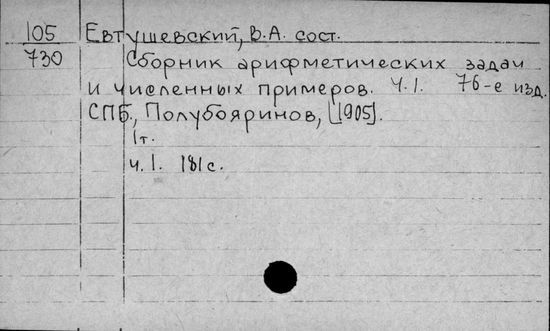 105 Евтушевский, В.А. сост.
730 Сборник арифметических задач
и численных примеров. Ч.1. 76-е изд.
СПБ., Полубояринов, [1905].
1т.
ч.1. 181с.